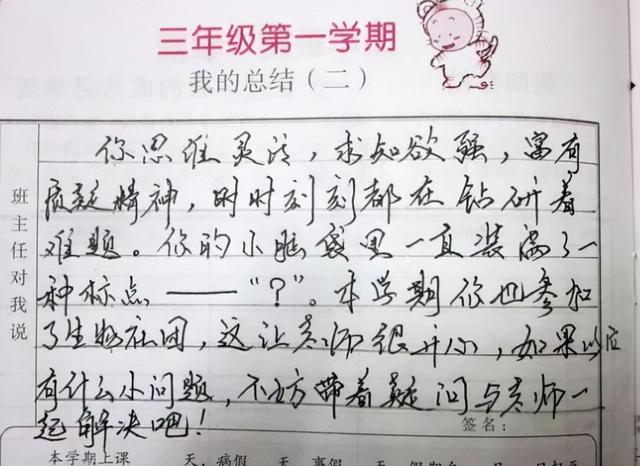 三年级第一学期
我的总结（二）
班主任对我说
你思维灵活，求知欲强，富有
质疑精神，时时刻刻都在钻研着
难题。你的小脑袋里一直装满了一
种标点——“？”。本学期你也参加
了生物社团，这让老师很开心，如果以后
有什么小问题，不妨带着疑问与老师一
起解决吧！
签名：
本学期上课 天，病假 天，事假 天，